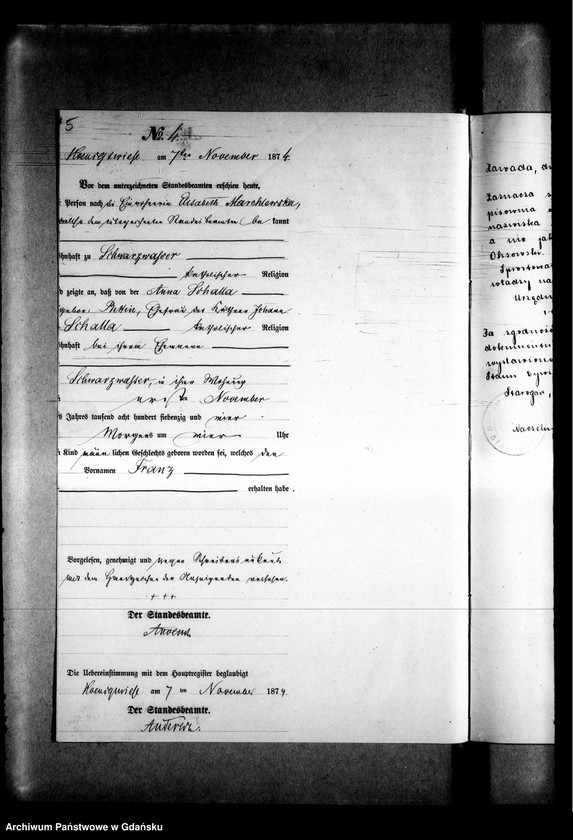 5
No. 4.
Koenigswiese am 7ten November 1874.
Vor dem unterzeichneten Standesbeamten erschien heute,
Person nach die Einwohnerin Elisabeth Marchlewska,
welche dem unterzeichneten Standesbeamten be kannt
hnhaft zu Schwarzwasser
katholischer Religion
d zeigte an, daß von der Anna Schalla
gebor. Ehefrau des Käthners Johann
Schalla katholischer Religion
hnhaft bei ihrem Ehemanne
Schwarzwasser, in ihrer Wohnung
ersten November
s Jahres tausend acht hundert siebenzig und vier
Morgens um vier Uhr
Kind männ lichen Geschlechts geboren worden sei, welches den
Vornamen Franz
erhalten habe.
Vorgelesen, genehmigt und wegen Schreibensunkunde
mit dem Handzeichen der Anzeigenden versehen.
+ + +
Der Standesbeamte.
Die Uebereinstimmung mit dem Hauptregister beglaubigt
Koenigswiese am 7 ten November 1874.
Der Standesbeamte.
Zawada, d
pisownia
nazwiska
a nie ja
władzy na
Urzędn
dokumentu
Stanu Cywi
Starogar,
Naczeln
Archiwum Państwowe w Gdańsku